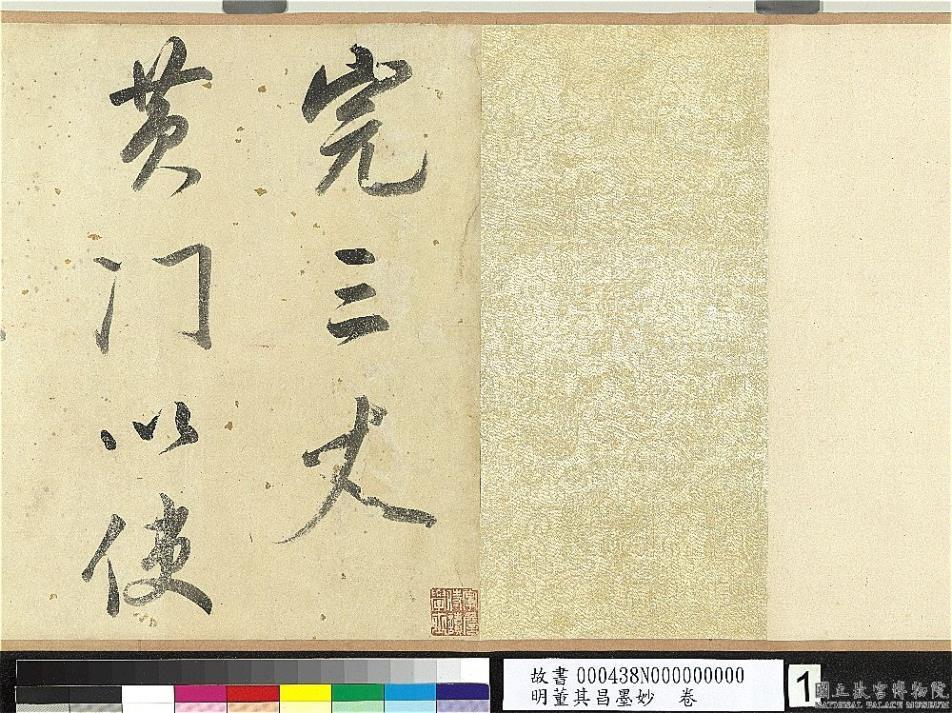 完三丈
黄门以使
故書 000438N000000000
明董其昌墨妙 卷
1
國立故宮博物院
NATIONAL PALACE MUSEUM